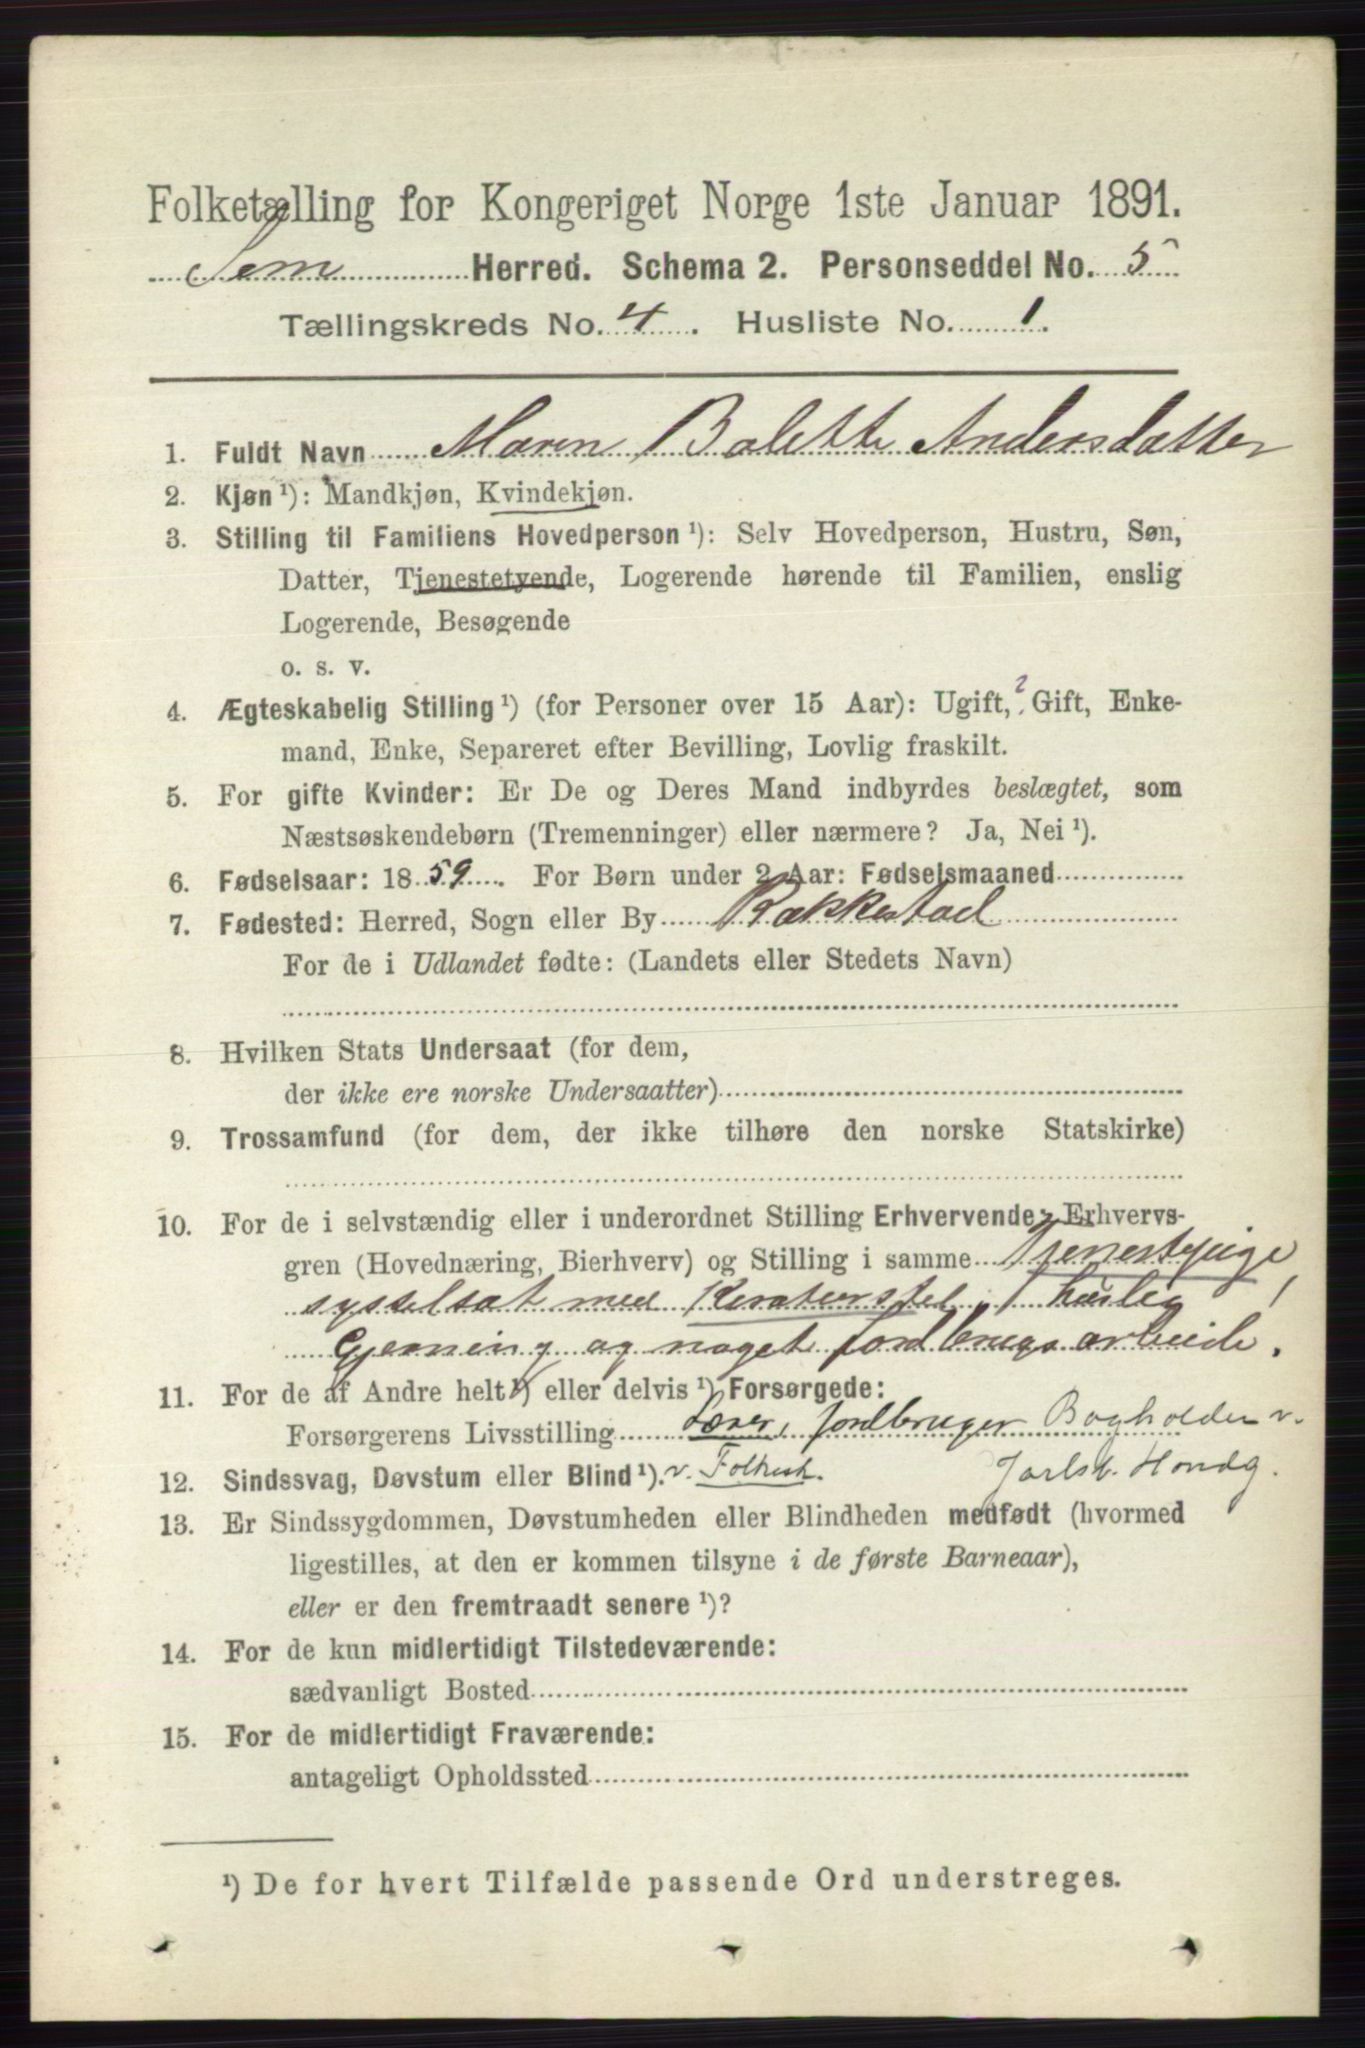 Folketælling for Kongeriget Norge 1ste Januar 1891.
Sem Herred. Schema 2. Personseddel No. 5
Tællingskreds No. 4. Husliste No. 1.
1. Fuldt Navn Maren Bolette Andersdatter
2. Kjøn ¹): Mandkjøn, Kvindekjøn.
3. Stilling til Familiens Hovedperson ¹): Selv Hovedperson, Hustru, Søn,
Datter, Tjenestetyende, Logerende hørende til Familien, enslig
Logerende, Besøgende
o. s. v.
4. Ægteskabelig Stilling ¹) (for Personer over 15 Aar): Ugift, ? Gift, Enke-
mand, Enke, Separeret efter Bevilling, Lovlig fraskilt.
5. For gifte Kvinder: Er De og Deres Mand indbyrdes beslægtet, som
Næstsøskendebørn (Tremenninger) eller nærmere? Ja, Nei ¹).
6. Fødselsaar: 1859. For Børn under 2 Aar: Fødselsmaaned
7. Fødested: Herred, Sogn eller By Rakkestad
For de i Udlandet fødte: (Landets eller Stedets Navn)
8. Hvilken Stats Undersaat (for dem,
der ikke ere norske Undersaatter)
9. Trossamfund (for dem, der ikke tilhøre den norske Statskirke)
10. For de i selvstændig eller i underordnet Stilling Erhvervende: Erhvervs-
gren (Hovednæring, Bierhverv) og Stilling i samme Tjenestepige,
sysselsat med Kreaturstel, huslig
Gjerning og noget jordbrugsarbeide.
11. For de af Andre helt ¹) eller delvis ¹) Forsørgede:
Forsørgerens Livsstilling Lærer, jordbruger Bogholder v.
12. Sindssvag, Døvstum eller Blind ¹). v. Folkesk. Jarlsb. Hovdg.
13. Er Sindssygdommen, Døvstumheden eller Blindheden medfødt (hvormed
ligestilles, at den er kommen tilsyne i de første Barneaar),
eller er den fremtraadt senere ¹)?
14. For de kun midlertidigt Tilstedeværende:
sædvanligt Bosted
15. For de midlertidigt Fraværende:
antageligt Opholdssted
¹) De for hvert Tilfælde passende Ord understreges.